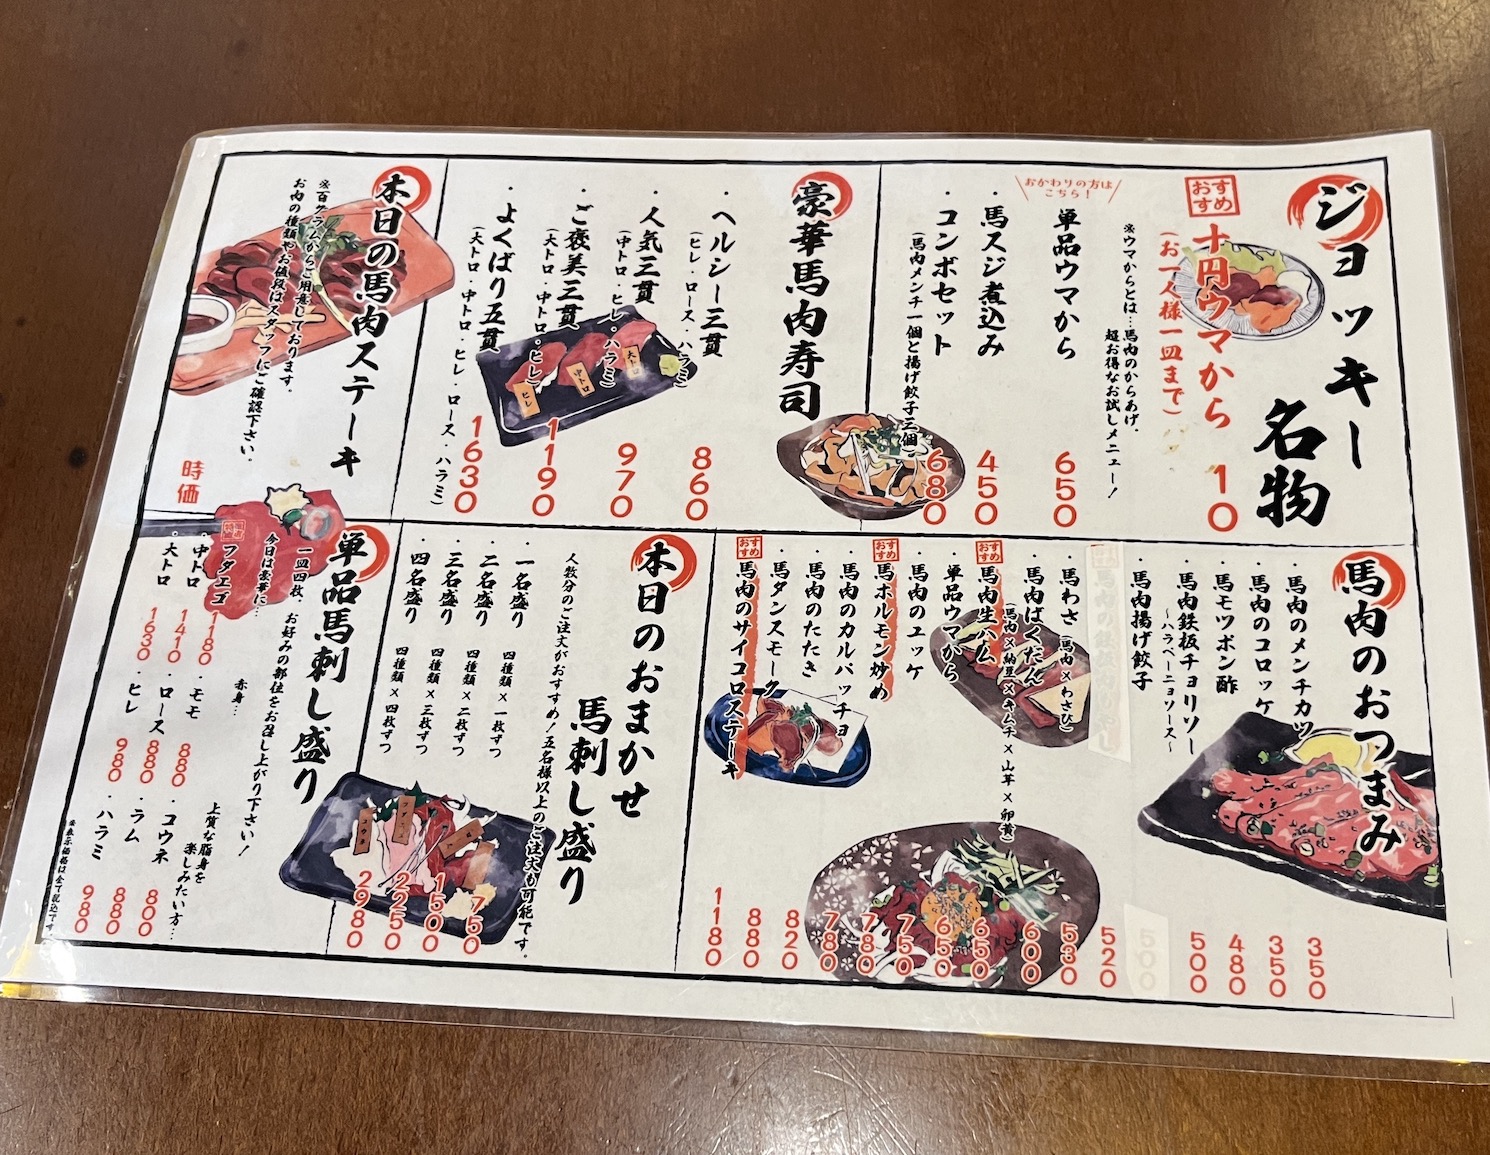 ジョッキー名物
おすすめ
十円ウマから 10
(お一人様一皿まで)
※ウマからとは…馬肉のからあげ。
超お得なお試しメニュー!
おかわりの方は
こちら!
単品ウマから 650
・馬スジ煮込み 450
・コンボセット 680
(馬肉メンチ一個と揚げ餃子三個)
豪華馬肉寿司
・ヘルシー三貫 860
(ヒレ・ロース・ハラミ)
・人気三貫 970
(中トロ・ヒレ・ハラミ)
・ご褒美三貫 1190
(大トロ・中トロ・ヒレ)
・よくばり五貫 1630
(大トロ・中トロ・ヒレ・ロース・ハラミ)
大トロ
中トロ
ヒレ
本日の馬肉ステーキ
※百グラムからご用意しております。
お肉の種類やお値段はスタッフにご確認下さい。
時価
馬肉のおつまみ
・馬肉のメンチカツ 350
・馬肉のコロッケ 350
・馬モツポン酢 480
・馬肉鉄板チョリソー 500
~ハラペーニョソース~
・馬肉揚げ餃子 520
500
・馬わさ(馬肉×わさび) 530
・馬肉ばくだん 600
(馬肉×納豆×キムチ×山芋×卵黄)
おすすめ
馬肉生ハム 650
・単品ウマから 650
・馬肉のユッケ 750
おすすめ
馬ホルモン炒め 780
・馬肉のカルパッチョ 780
・馬肉のたたき 820
・馬タンスモーク 880
おすすめ
馬肉のサイコロステーキ 1180
本日のおまかせ
馬刺し盛り
人数分のご注文がおすすめ!五名様以上のご注文も可能です。
・一名盛り 四種類×一枚ずつ 750
・二名盛り 四種類×二枚ずつ 1500
・三名盛り 四種類×三枚ずつ 2250
・四名盛り 四種類×四枚ずつ 2980
コウネ
単品馬刺し盛り
一皿四枚。お好みの部位をお召し上がり下さい!
今日は豪華に…
フタエゴ 1180
・中トロ 1410
・大トロ 1630
赤身…
・モモ 880
・ロース 880
・ヒレ 980
上質な脂身を
楽しみたい方…
・コウネ 800
・ラム 880
・ハラミ 980
※表示価格は全て税込です。